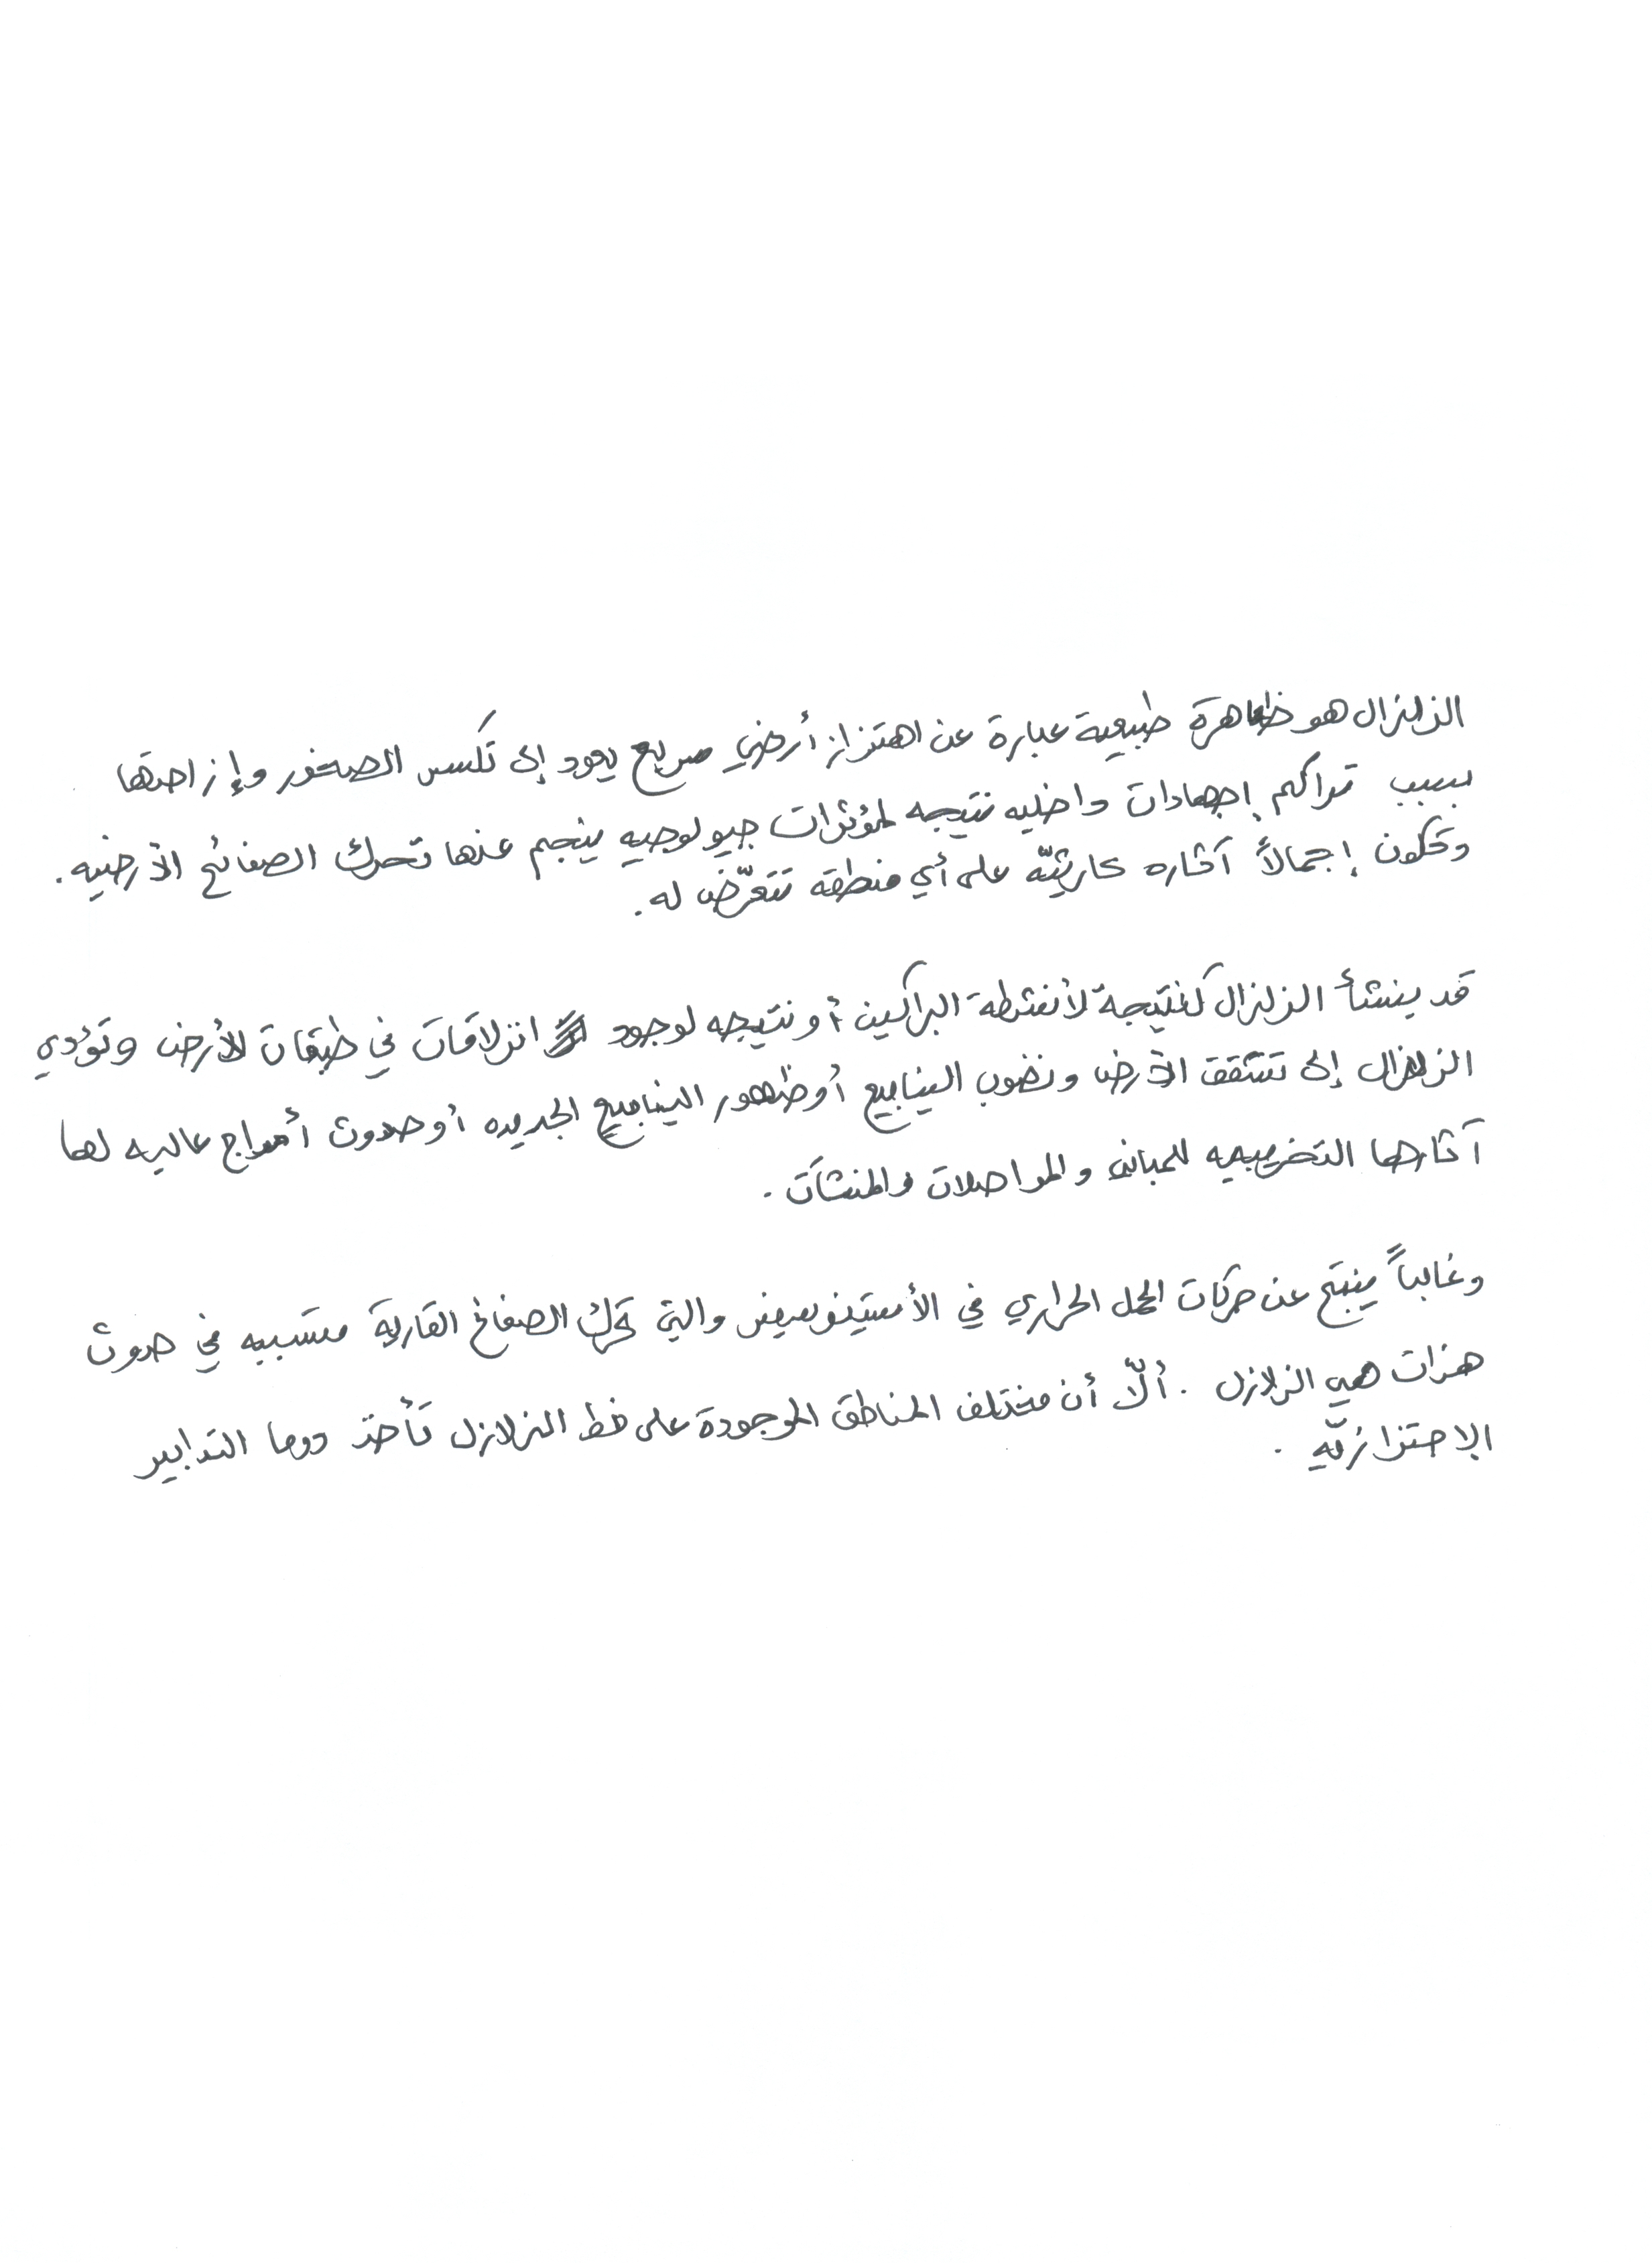 الزلزال هو ظاهرة طبيعية عبارة عن اهتزاز أرضي سريع يعود إلى تكسر الصخور وإزاحتها
بسبب تراكم إجهادات داخليه نتيجه لمؤثرات جيولوجيه ينجم عنها تحرك الصفائح الأرضيه.
وتكون إجمالاً آثاره كارثيّه على أي منطقه تتعرّض له.
قد ينشأ الزلزال كنتيجة لأنشطة البراكين أو نتيجه لوجود انزلاقات في طبقات الأرض وتؤدي
الزلازل إلى تشقق الأرض ونضوب الينابيع أو ظهور الينابيع الجديده أو حدوث أمواج عاليه لها
آثارها التخريبيه للمباني والمواصلات والمنشآت.
وغالباً ينتج عن حركات الحمل الحراري في الأستينوسفير والتي تحرك الصفائح القارية متسببه في حدوث
هزات هي الزلازل. ألّا أن مختلف المناطق الموجودة على خط الزلازل تأخذ دوما التدابير
الإحترازيّه.